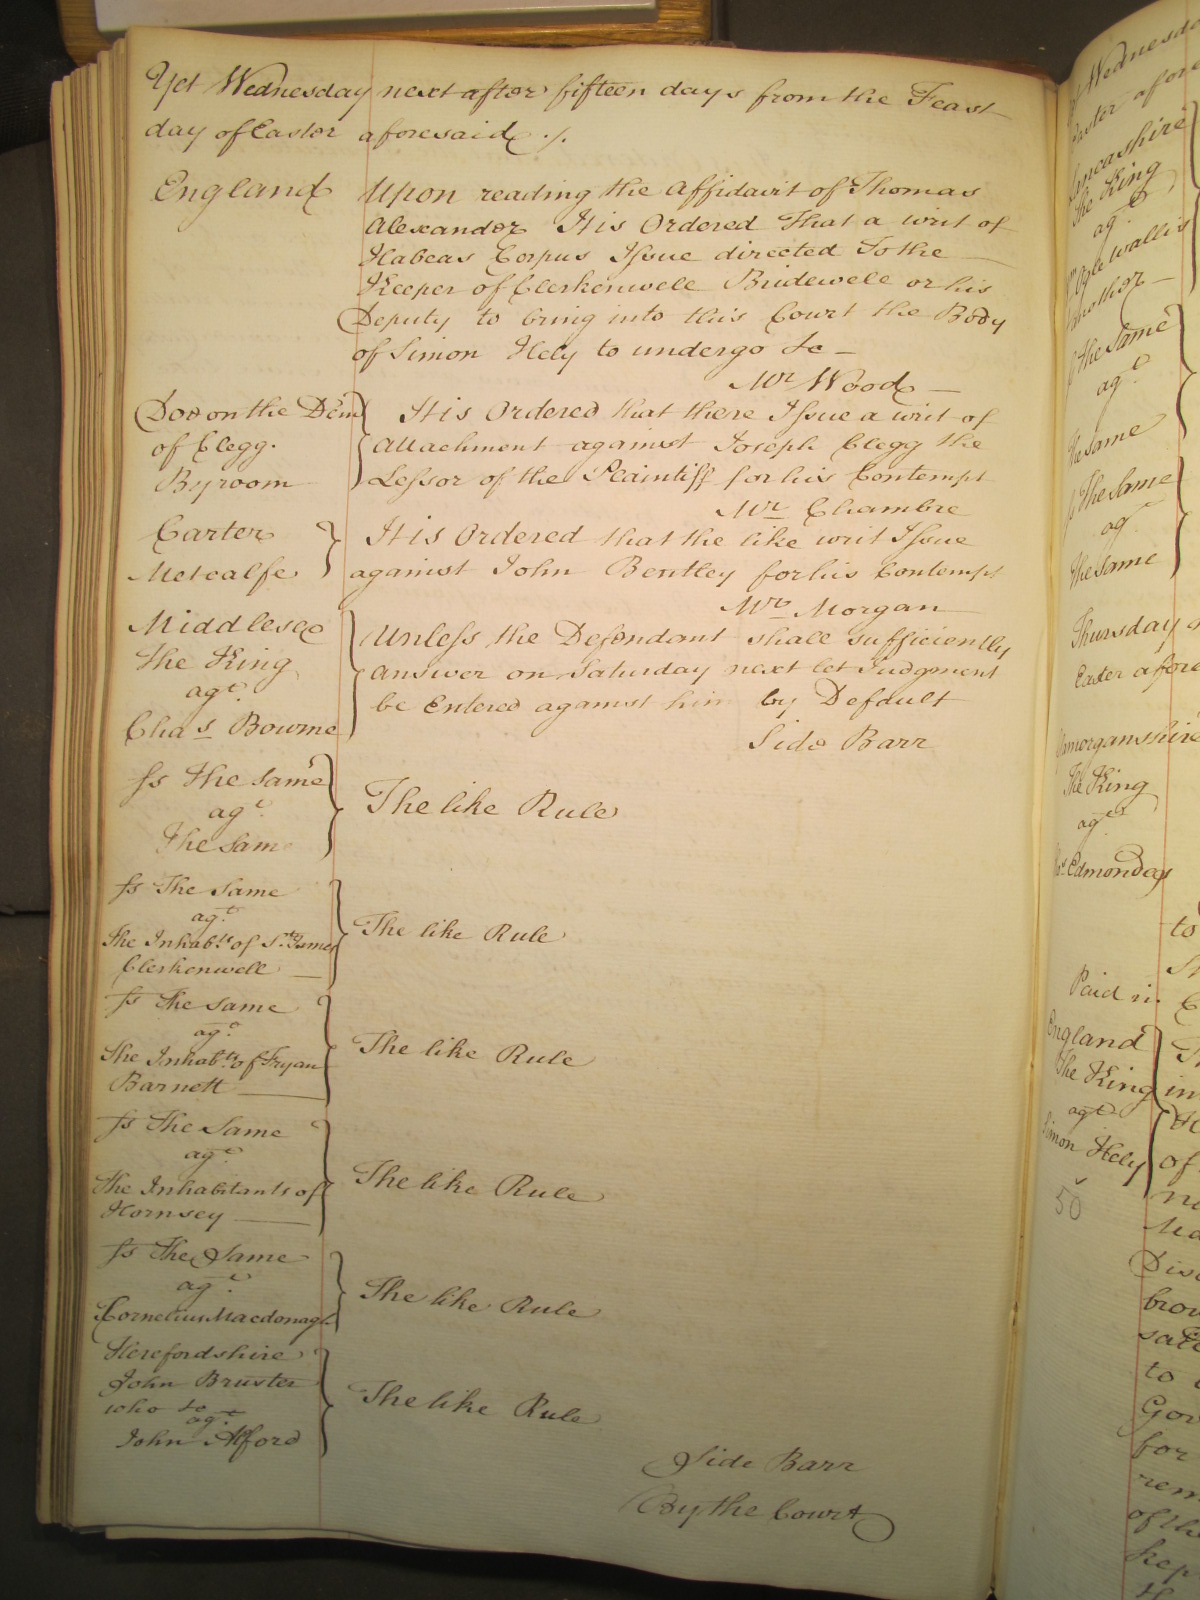 Yet Wednesday next after fifteen days from the Feast
day of Easter aforesaid ./.
England
Upon reading the Affidavit of Thomas
Alexander It is Ordered That a writ of
Habeas Corpus Issue directed To the
Keeper of Clerkenwell Bridewell or his
Deputy to bring into this Court the Body
of Simon Hely to undergo &c —
Mr Wood —
Doe on the Dem
of Clegg.
Byroom
It is Ordered that there Issue a writ of
Attachment against Joseph Clegg the
Lessor of the Plaintiff for his Contempt
Mr Chambre
Carter
Metcalfe
It is Ordered that the like writ Issue
against John Bentley for his Contempt
Mr Morgan
Middlesex
The King
agt.
Chas Bowme
Unless the Defendant shall sufficiently
Answer on Saturday next let Judgment
be Entered against him by Default
Side Barr
ss The Same
agt.
The Same
The like Rule
ss The Same
agt.
The Inhabts. of St. James
Clerkenwell —
The like Rule
ss The Same
agt.
The Inhabts. of Fryan
Barnett —
The like Rule
ss The Same
agt.
The Inhabitants of
Hornsey —
The like Rule
ss The Same
agt.
Cornelius Macdonagh
The like Rule
Herefordshire
John Bruster
who &c
agt.
John Alford
The like Rule
Side Barr
By the Court
Wednesday
Easter afore
Lancashire
The King
agt
Ogle Wallis
Another —
The Same
agt.
The Same
ss The Same
agt
The Same
Thursday
Easter afore
Glamorganshire
The King
agt
Edmondes
to
Paid in
England
The King
agt
Simon Hely
50
in
of
Disc
brou
to
Gov
for
rem
of the
kep